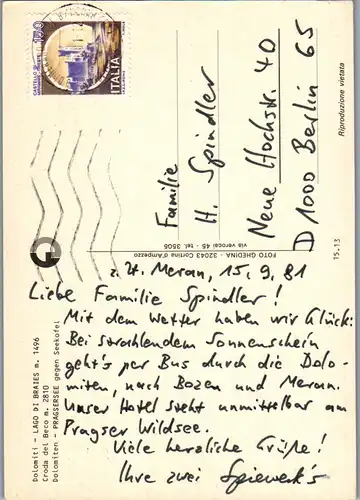 CASTELLO
100
ITALIA
Familie
H. Spindler
Neue Hochstr. 40
D 1000 Berlin 65
Riproduzione vietata
15.13
FOTO GHEDINA - 32043 Cortina d'Ampezzo
via verocai 45 - tel. 3505
Dolomiti - LAGO DI BRAIES m. 1496
Croda del Beco m. 2810
Dolomiten - PRAGSERSEE gegen Seekofel
z. Zt. Meran, 15.9.81
Liebe Familie Spindler!
Mit dem Wetter haben wir Glück:
Bei strahlendem Sonnenschein
geht's per Bus durch die Dolo-
miten, nach Bozen und Meran.
Unser Hotel steht unmittelbar am
Pragser Wildsee.
Viele herzliche Grüße!
Ihre zwei Spiewerk's